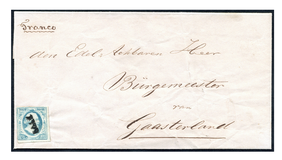 Franco
den Edel Achtbaren Heer
Burgemeester
van
Gaasterland